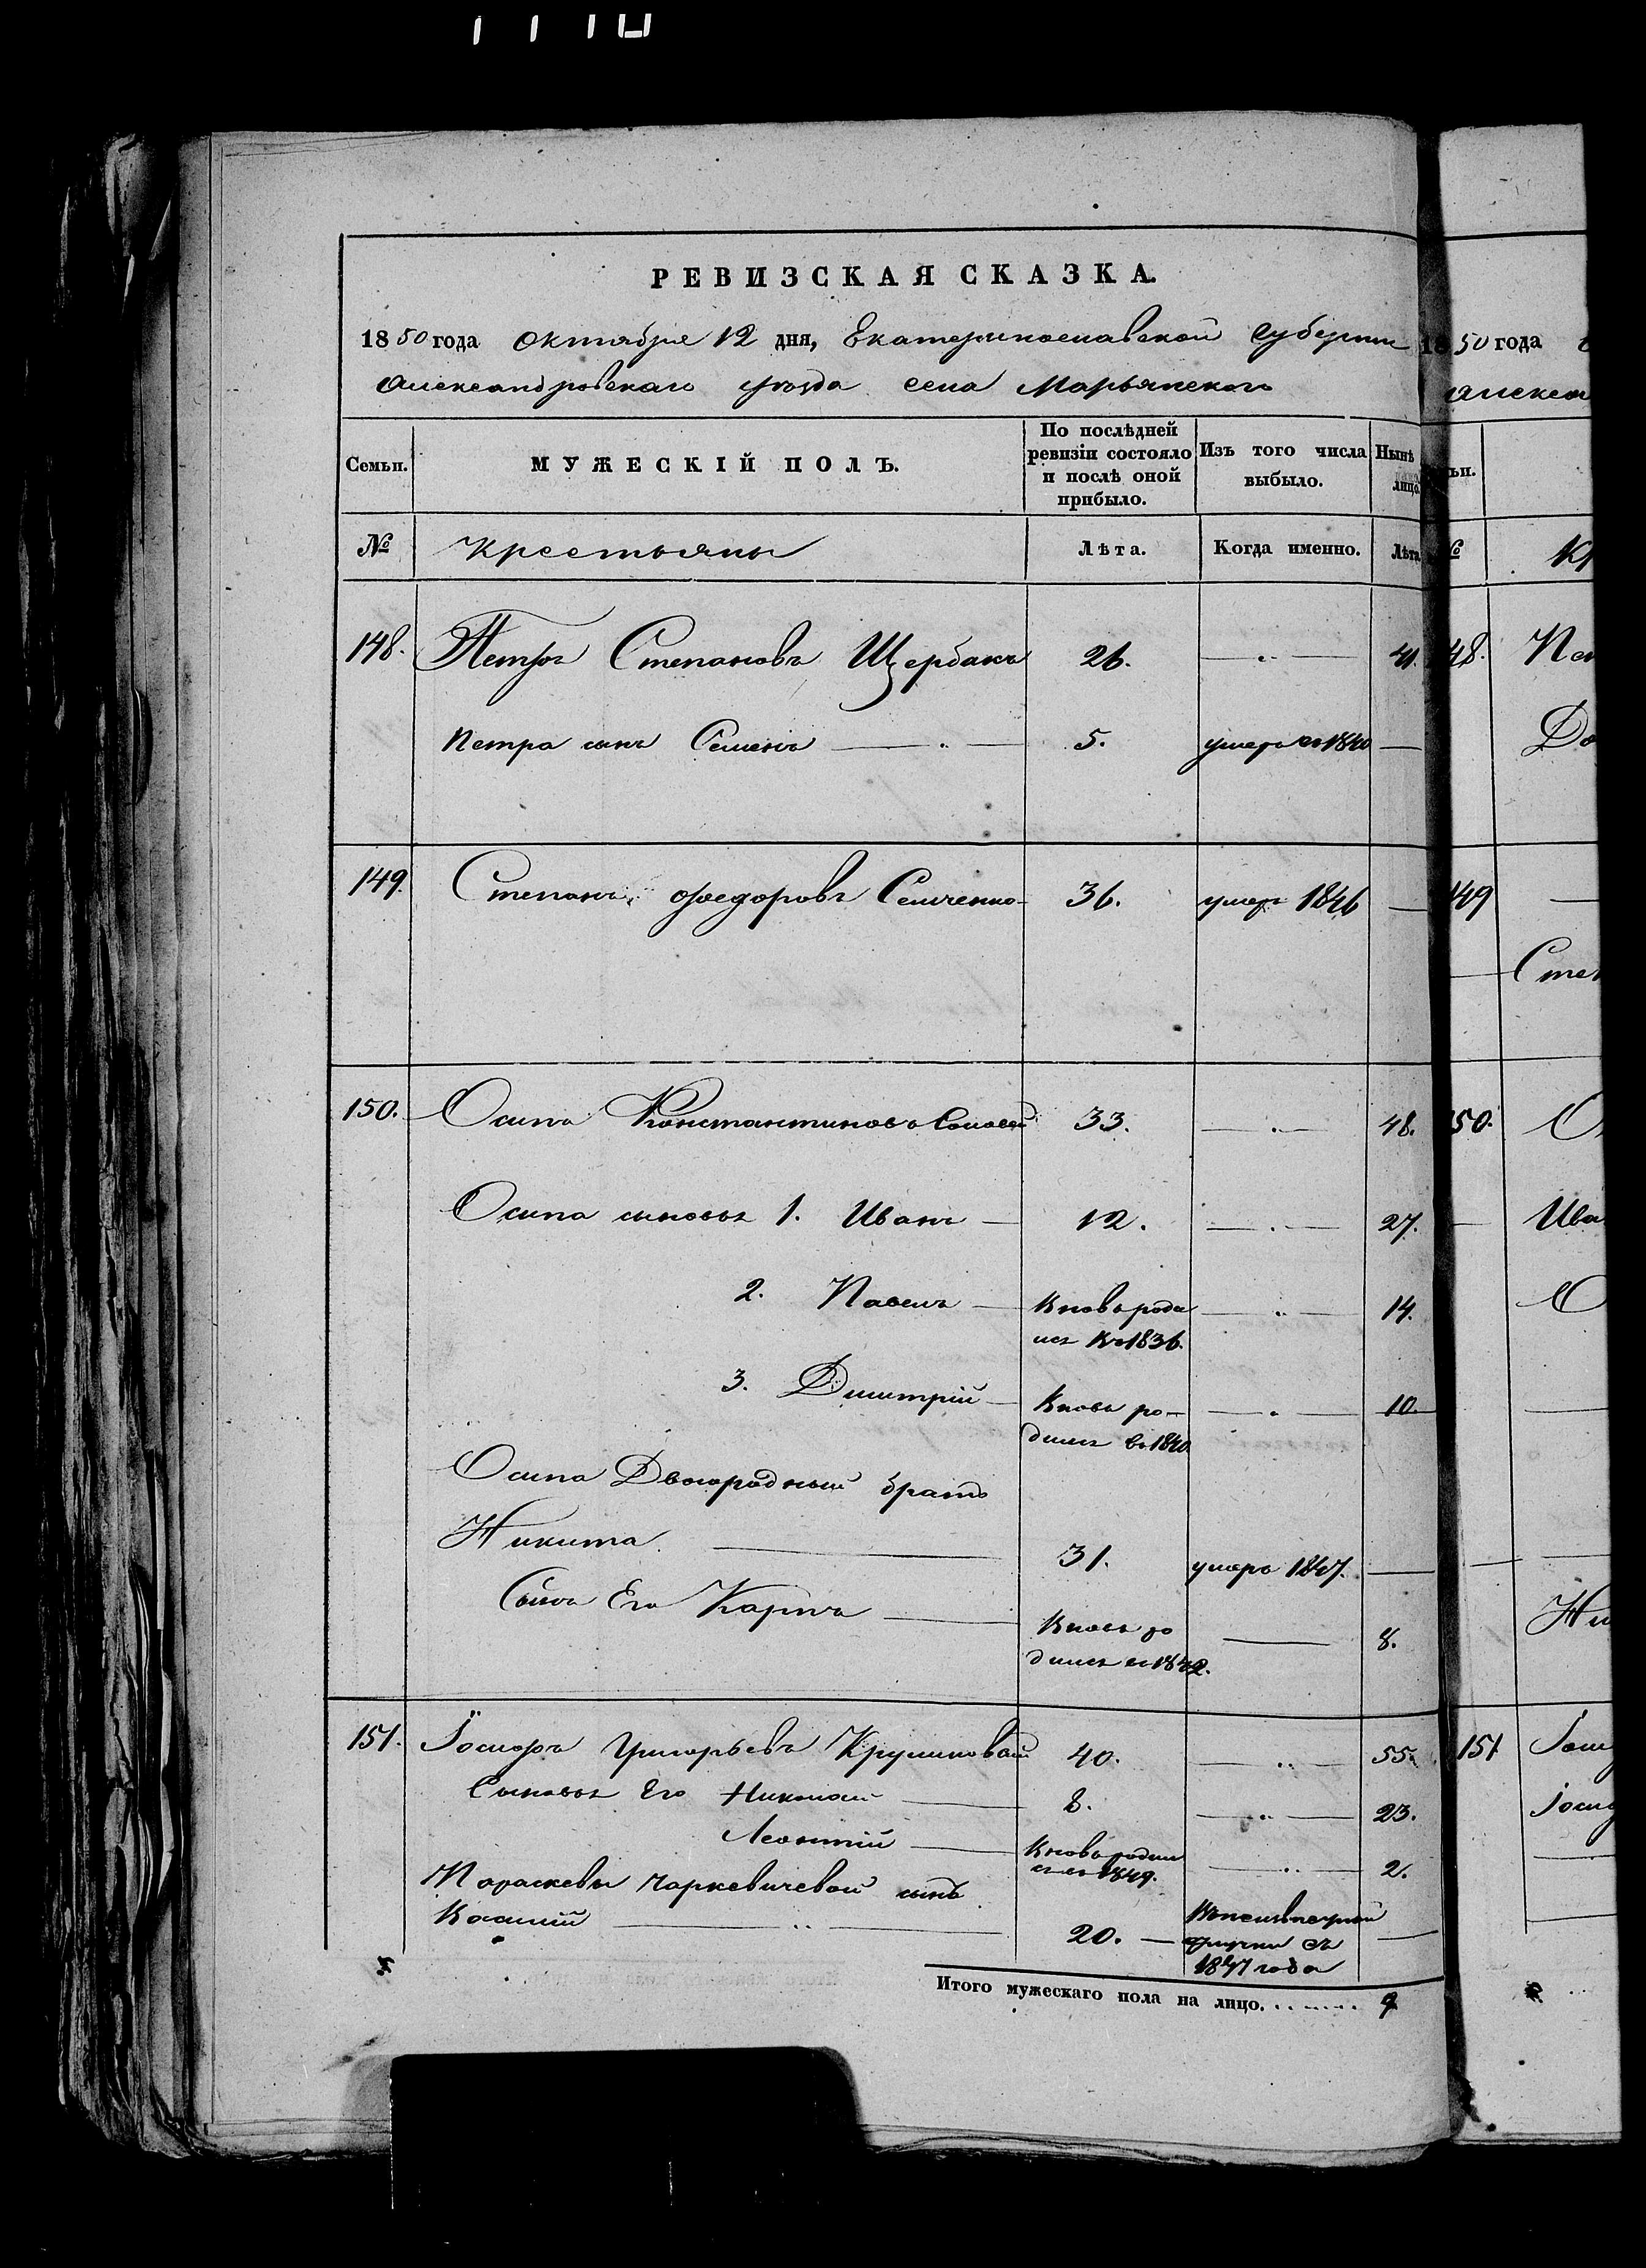 РЕВИЗСКАЯ СКАЗКА.
1850 года Октября 12 дня, Екатеринославской Губернии
Александровскаго уѣзда села Марьянскаго
Семьи. МУЖЕСКІЙ ПОЛЪ. По послѣдней ревизіи состояло и послѣ оной прибыло. Изъ того числа выбыло. Нынѣ на лицо.
№ Крестьяны Лѣта. Когда именно. Лѣта
148. Петръ Степановъ Щербакъ 26. — 41.
Петра сынъ Семенъ — 5. умеръ въ 1840 —
149. Степанъ Федоровъ Семченко 36. умеръ 1846 —
150. Осипъ Константиновъ 33. — 48.
Осипа сыновья 1. Иванъ — 12. — 27.
2. Павелъ — Вновь роди — 14.
лся въ 1836.
3. Димитрій — Вновь ро- — 10.
дился въ 1840
Осипа Двоюродный братъ
Никита — 31. умеръ 1847. —
Сынъ Его Карпъ — Вновь ро — 8.
дился въ 1842.
151. Іосифъ Григорьевъ 40. — 55.
Сыновья Его Николай — 8. — 23.
Леонтій — Вновь родил — 2.
ся въ 1849.
Параскевы сынъ
Василій — 20. — —
1847 года
Итого мужескаго пола на лицо. 9
1850 года
148.
149
150.
Ива
151